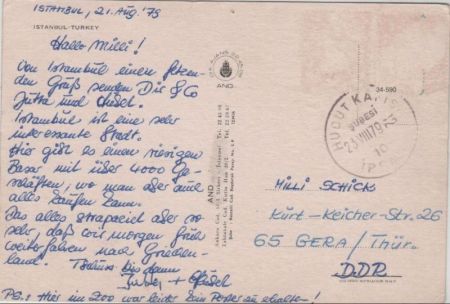 ISTANBUL, 21. Aug. '79
ISTANBUL-TURKEY
Hallo Milli!
Von Istanbul einen fetzen-
den Gruß senden Dir & Co
Jutta und
Istanbul ist eine sehr
interessante Stadt.
Hier gibt es einen riesigen
Basar mit über 4000 Ge-
schäften, wo man aber auch
alles kaufen kann.
Das alles strapaziert aber so
sehr, daß wir morgen früh
weiterfahren nach Griechen-
land. Tschüss bis dann
Jutta +
PS.: Hier im Zoo war leider kein Poster zu erhalten!
AND
34-590
HUDUT KAPISI
ŞUBESİ
23 VIII 79
10
MILLI SCHICK
Kurt-Keicher-Str. 26
65 GERA / Thür.
DDR